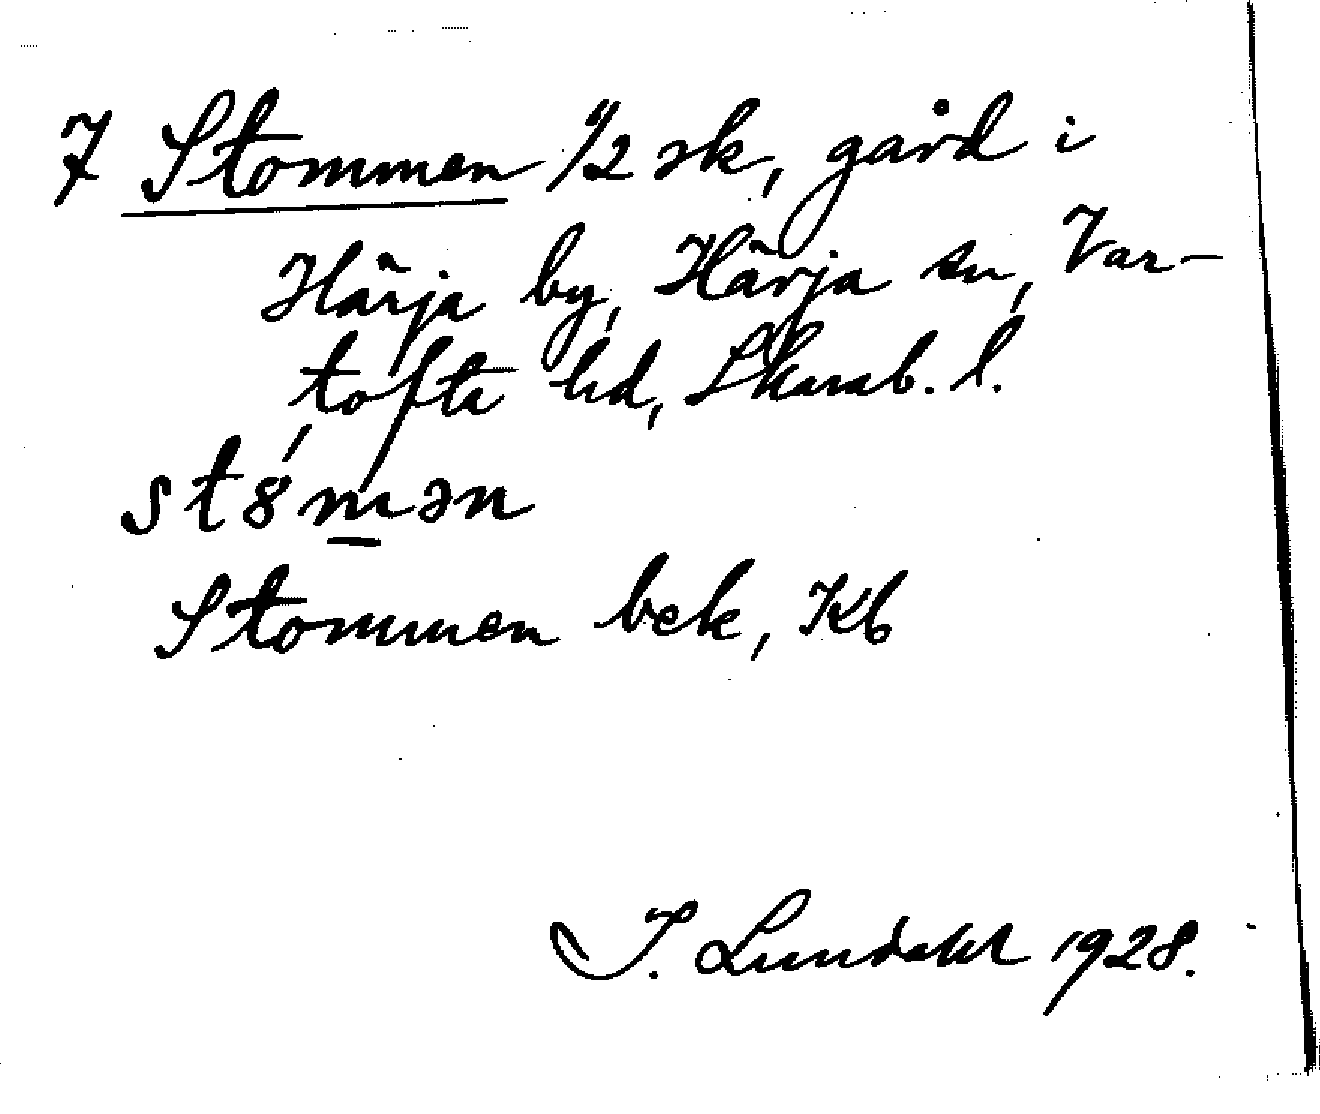 7 Stommen 1/2 sk, gård i
Härja by, Härja sn, Var-
tofta hd, Skarab. l.
st8́mən
Stommen bek, Kb
I. Lundahl 1928.